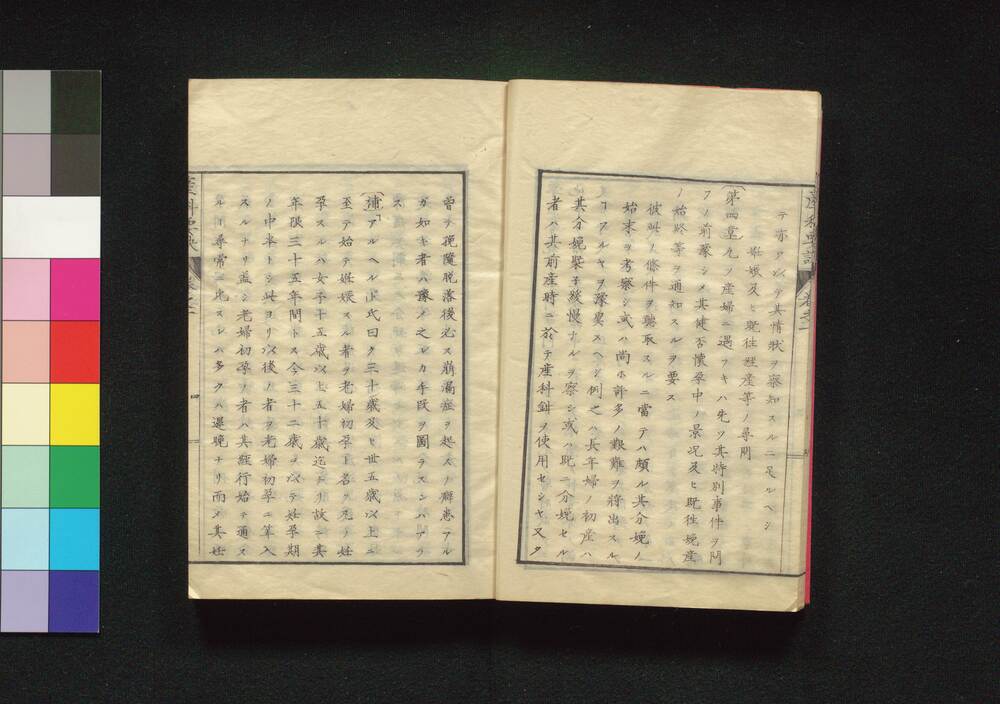 テ亦アハイテ其情狀ヲ察知スルニ足ルベシ
姙娠及ヒ既徃經產等ノ尋問
第四章凡ソ產婦ニ遇フトキハ先ツ其特別事件ヲ問
フノ前豫シメ其健否懷孕中ノ景況及ヒ既徃娩產
ノ始終等ヲ通知スルヲ要ス
彼此ノ條件ヲ聽取スルニ當テハ頗ル其分娩ノ
始末ヲ考察シ或ハ尚ホ許多ノ艱難ヲ將出スル
コアルヤヲ豫要スヘシ例之ハ長年婦ノ初產ハ
其分娩槩子緩慢ナルヲ察シ或ハ既ニ分娩セル
者ハ其前產時ニ於テ產科鉗ヲ使用セシヤ又タ
曽テ脫落後必ス崩漏症ヲ起スノ癖患アル
カ如キ者ハ豫メ之レカ手段ヲ圖ラスンハアラ
ス
補「アルヘル」氏曰ク三十歲及ヒ卅五歲以上ニ
至テ始テ姙娠スル者ヲ老婦初孕ト名ク凡ソ姙
孕スルハ女子十五歲以上五十歲迄トリ故ニ其
年限三十五年間トス今三十二歲ヲ以テ姙孕期
ノ中半トシ此ヨリ以後ノ者ヲ老婦初孕ニ算入
スルナリ蓋シ老婦初孕ノ者ハ其經行始テ通ス
ルヿ尋常ニ比スレハ多クハ遲晚ナリ而メ其姙
四